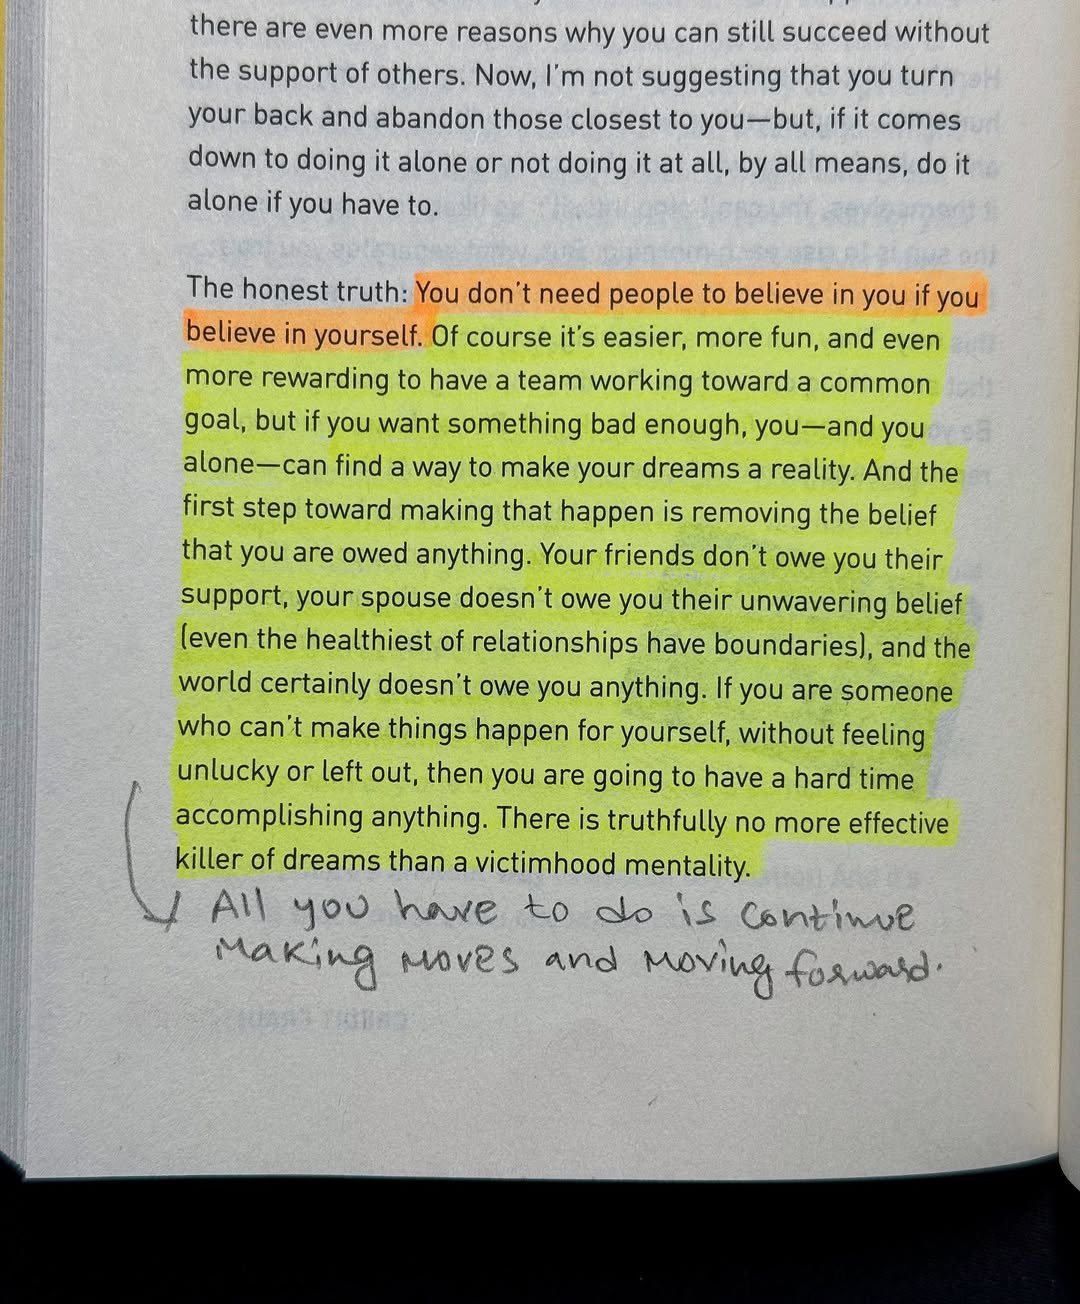 there are even more reasons why you can still succeed without
the support of others. Now, I'm not suggesting that you turn
your back and abandon those closest to you—but, if it comes
down to doing it alone or not doing it at all, by all means, do it
alone if you have to.
The honest truth: You don't need people to believe in you if you
believe in yourself. Of course it's easier, more fun, and even
more rewarding to have a team working toward a common
goal, but if you want something bad enough, you—and you
alone—can find a way to make your dreams a reality. And the
first step toward making that happen is removing the belief
that you are owed anything. Your friends don't owe you their
support, your spouse doesn't owe you their unwavering belief
(even the healthiest of relationships have boundaries), and the
world certainly doesn't owe you anything. If you are someone
who can't make things happen for yourself, without feeling
unlucky or left out, then you are going to have a hard time
accomplishing anything. There is truthfully no more effective
killer of dreams than a victimhood mentality.
All you have to do is continue
making moves and moving forward.